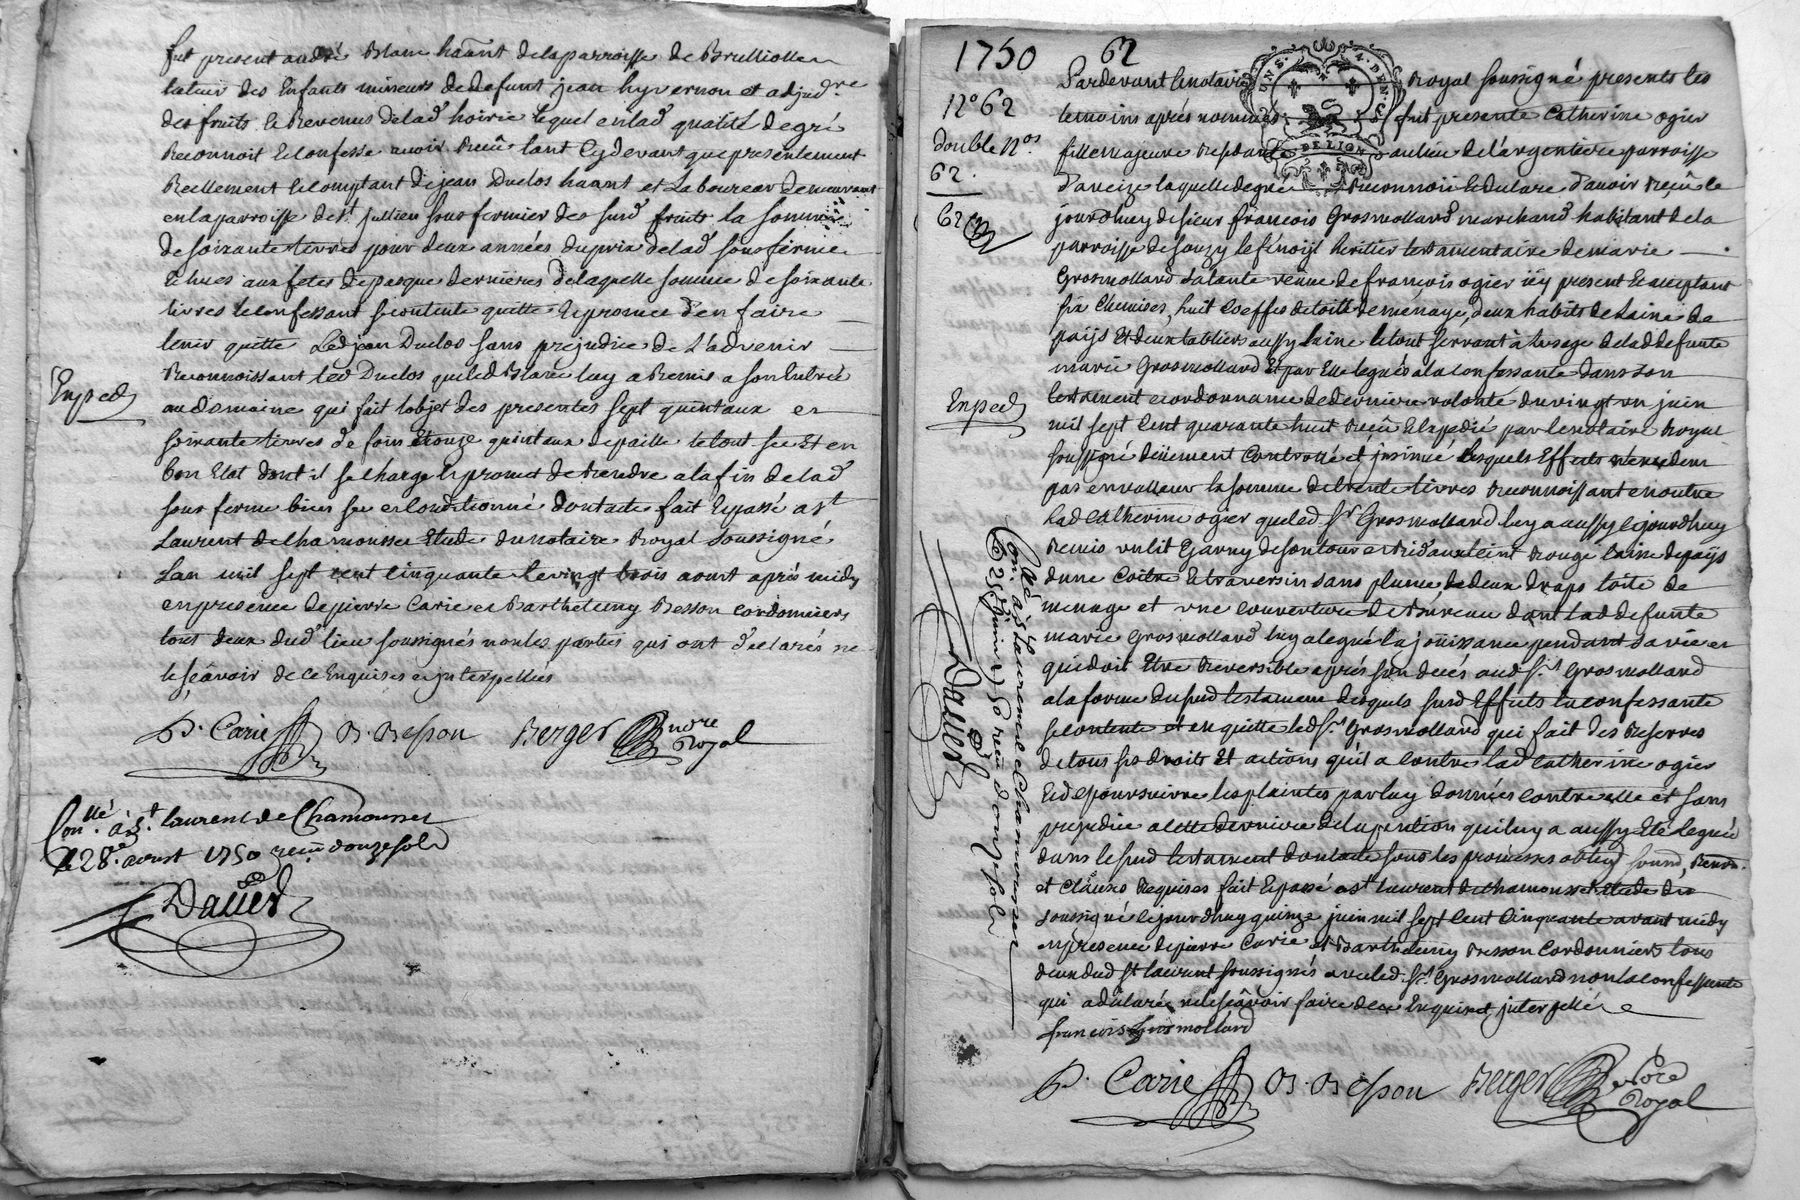 fut present andré Blanc haânt delaparroisse de Brulliolles
tuteur des Enfants mineurs dedefunt jean hyvernon et adjud.re
des fruits & Revenus delad hoirie lequel enlad qualité degré
Reconnoit & Confesse avoir Reçû tant Cydevant que presentement
Reellement & Comptant dejean Duclos haânt et Laboureur demeurant
enlaparroisse de St. jullien sous fermier des surd. fruits la somme
de soixante livres pour deux années duprix delad sous ferme
Echues aux fetes depasque dernieres delaquelle somme de soixante
livres le Confessant se contente quitte & promet d'en faire
tenir quitte Led jean Duclos sans prejudice de L'advenir
Reconnoissant led Duclos queled Blanc luy a Remis a son Entrée
au domaine qui fait lobjet des presentes sept quintaux et
soixante livres de foin & onze quintaux depaille le tout sec et en
bon Etat dont il se Charge & promet de Rendre alafin delad
sous ferme bien sec et Conditionné dontacte fait & passé a St
Laurent de Chamousset Etude du notaire Royal soussigné
Lan mil sept cent Cinquante & le vingt trois aoust aprés midy
enpresence depierre Carie et Barthelemy Besson Cordonniers
tous deux dud lieu soussignés nonles parties qui ont declarés ne
le sçavoir de ce Enquises & interpellées
Exped
P. Carie B. Besson Berger nore
Royal
Con.llé à St. laurent de Chamousset
le 28.e aoust 1750 reçu douze sols
Daved
1750 62
N.o 62
double N.os
62.
62
Pardevant lenotaire Royal soussigné presents les
temoins aprés nommés fut presente Catherine ogier
fille majeure Residante aulieu de l'argentiere parroisse
d'aveize laquelle degré Reconnoit & declare d'avoir Reçû le
jourdhuy de sieur françois Grosmollard marchand habitant de la
parroisse de souzy & heritier testamentaire de marie
Grosmollard sa tante veuve de françois ogier icy present & acceptant
six Chemises, huit Coeffes detoile de menage, deux habits de Laine de
païs Et deux tabliers aussy laine le tout servant à lusage delad defunte
marie Grosmollard Et par Elle legués ala confessante dans son
testament & ordonnance de derniere volonté du vingt un juin
mil sept Cent quarante huit Reçû & expedié par lenotaire Royal
soussigné düement Controllé et insinué Lesquels Effets n'excedent
pas en valleur la somme de trente livres Reconnoissant en outre
Lad Catherine ogier queled Sr. Grosmollard luy a aussy cejourdhuy
Remis un lit Garny de son tour et Rideaux teint Rouge laine depaïs
dune Coitre & traversin sans plume, de deux draps toile de
menage et une couverture de Bureau dont lad defunte
marie Grosmollard luy a legué la joüissance pendant sa vie et
qui doit Etre Reversible aprés son decés aud Sr. Grosmollard
a la forme du surd testament desquels surd Effets la confessante
se contente et en quitte led Sr. Grosmollard qui fait des Reserves
de tous ses droits Et actions qu'il a contre lad Catherine ogier
Et de poursuivre les plaintes par luy données contre elle et sans
prejudice a cette derniere de la pention qui luy a aussy Eté leguée
dans le surd testament dontacte sous les promesses oblig
et Clauses Requises fait & passé a St laurent de Chamousset Etude du
soussigné le jourdhuy quinze juin mil sept Cent Cinquante avant midy
en presence de pierre Carie et Barthelemy Besson Cordonniers tous
deux dud St laurent soussignés avec led. Sr. Grosmollard non la confessante
qui a declaré ne le sçavoir faire de ce Enquise & interpellée
Exped
Con.llé à St laurent de Chamousset
le 25e juin 1750 reçu douze sols
Daved
françois Grosmollard
P. Carie B. Besson Berger nore
Royal
GEN. DE LION